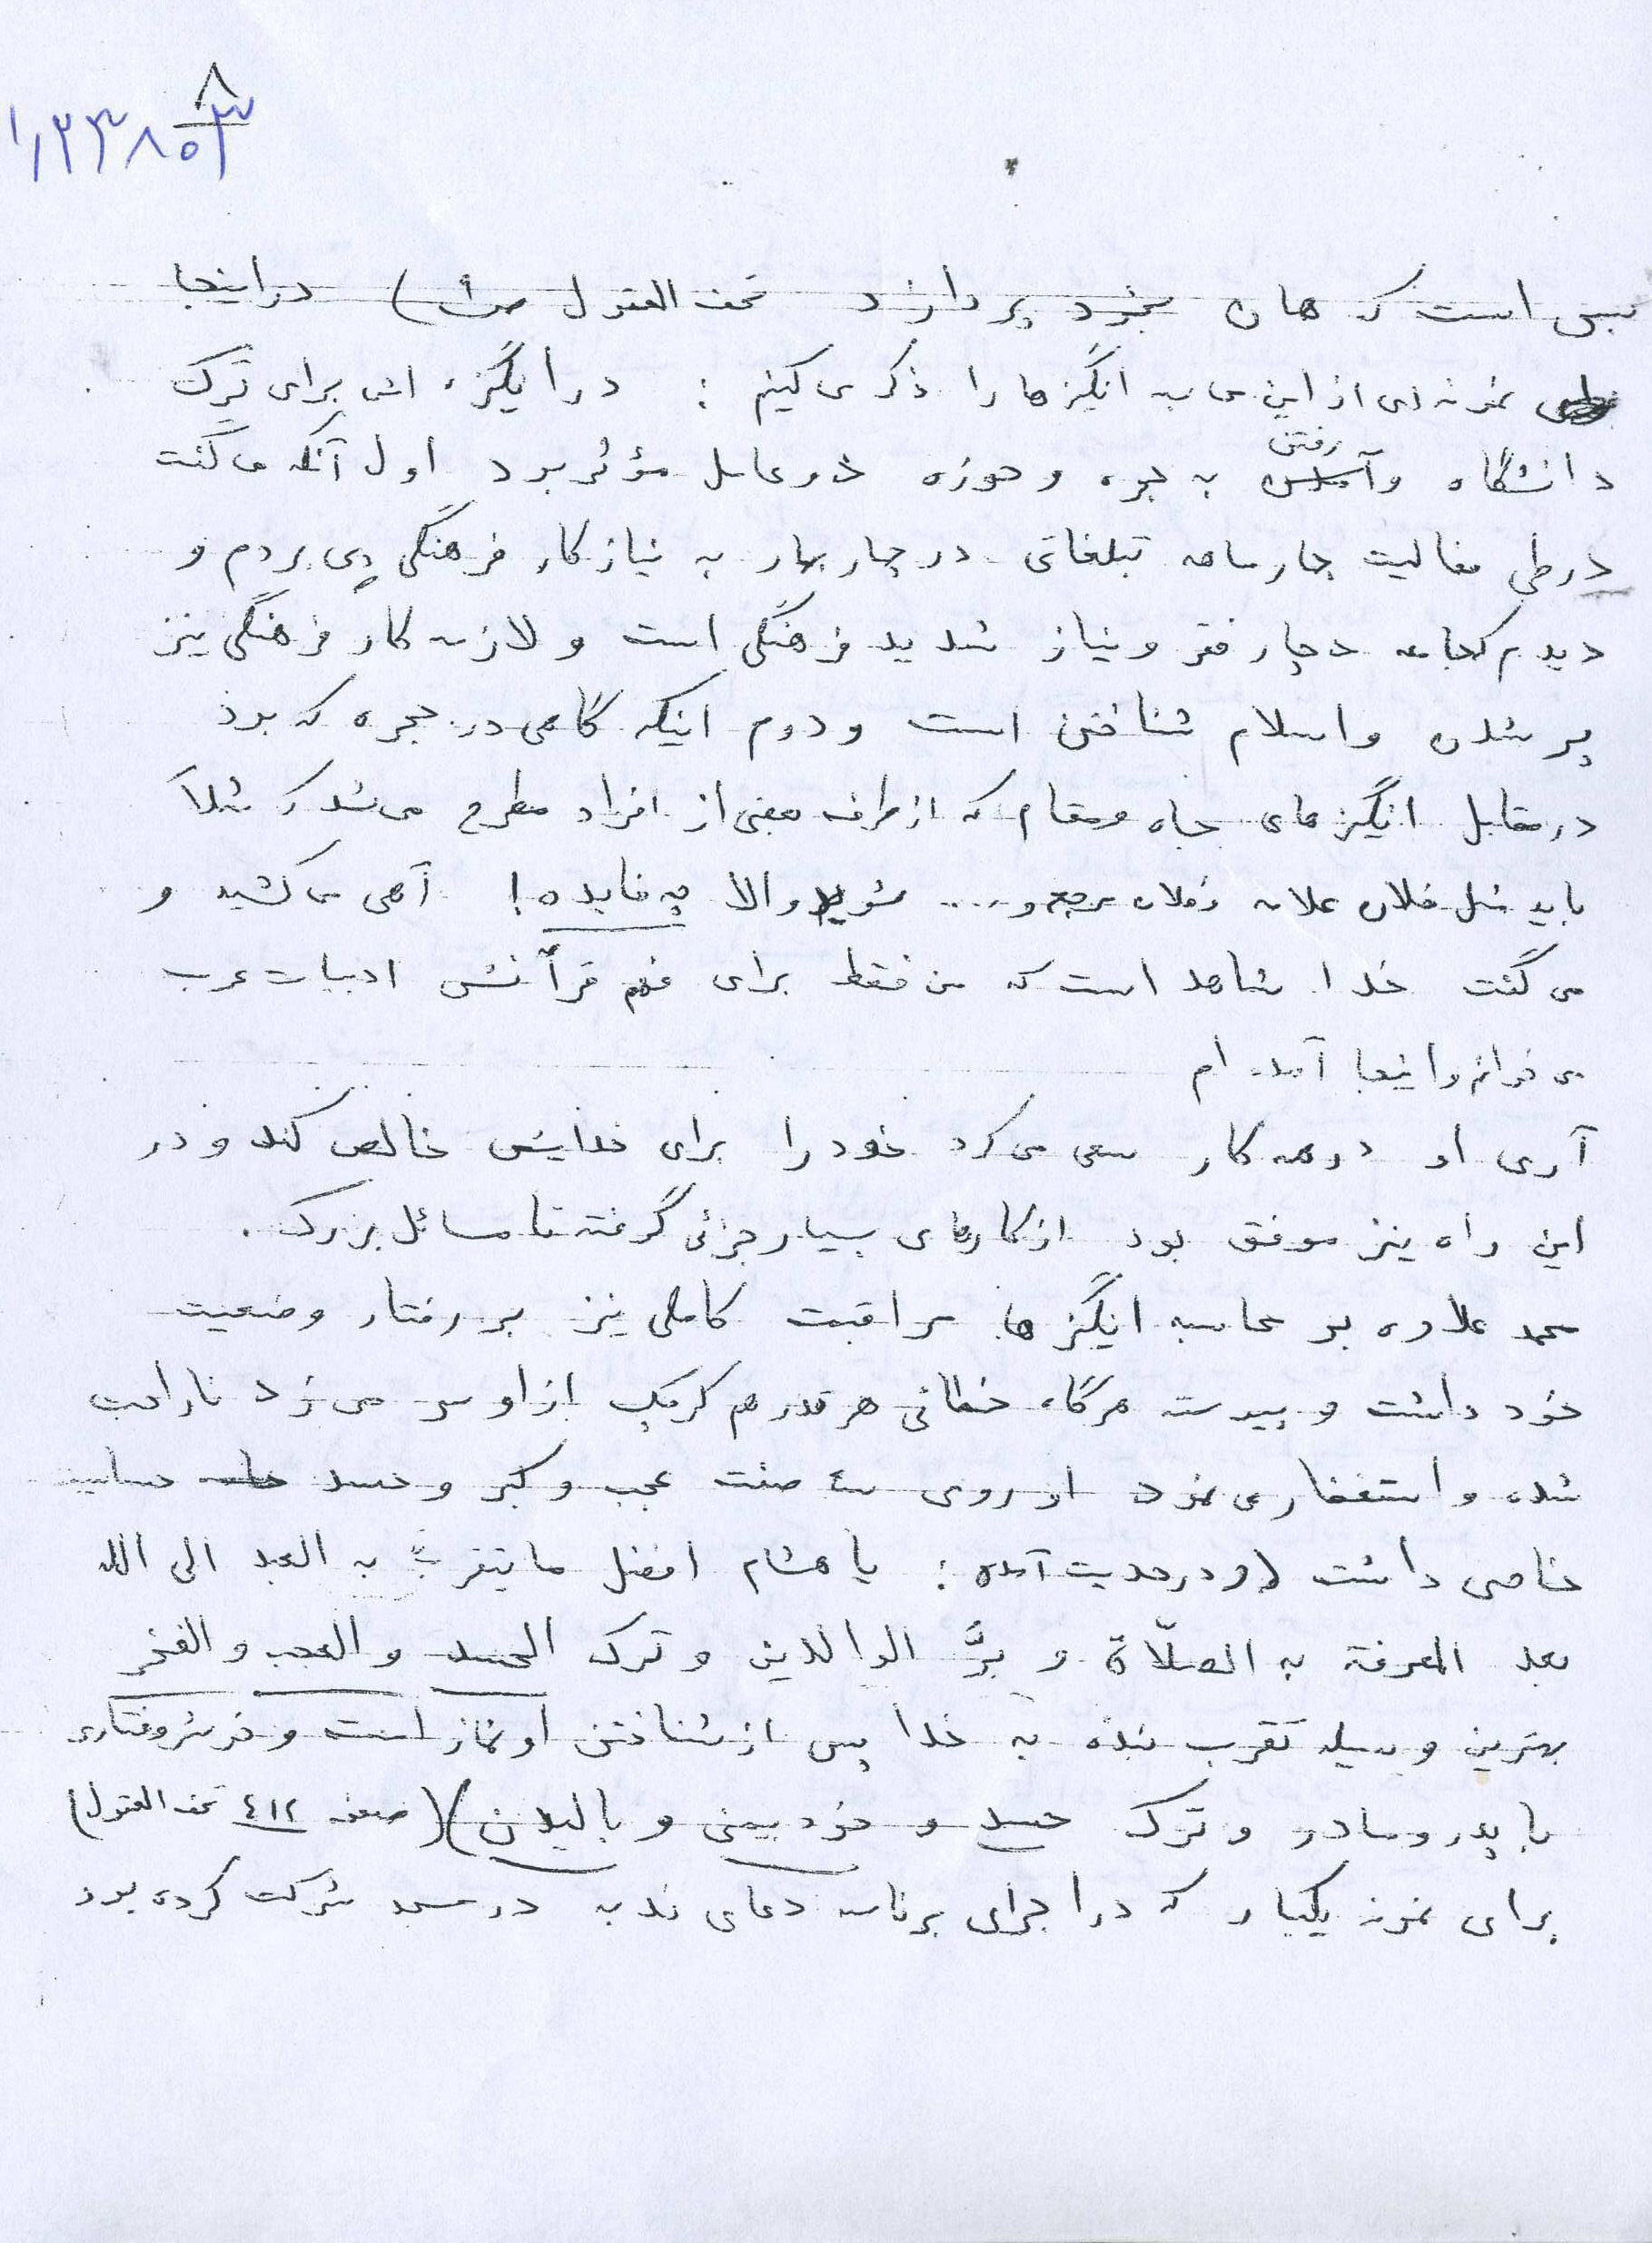 ۸
۱۱۲۳۸۰۳
است که همان بخرد پردازند تحف العقول ص) در اینجا
نمونه ای از این محاسبه انگیزه ها را ذکر می کنیم : در انگیزه اش برای ترک
دانشگاه و رفتن به حجره و حوزه دو عامل مؤثر بود اول آنکه می گفت
در طی فعالیت چهار ماهه تبلغاتی در چابهار به نیاز کار فرهنگی پی بردم و
دیدم که جامعه دچار فقر و نیاز شدید فرهنگی است و لازمه کار فرهنگی نیز
پر شدن و اسلام شناختن است و دوم اینکه گاهی در حجره که بود
در مقابل انگیزه های جاه و مقام که از طرف بعضی از افراد مطرح می شد که مثلاً
باید مثل فلان علامه و فلان مرجع و .... شوید والا چه فایده ! آهی می کشید و
می گفت خدا شاهد است که من فقط برای فهم قرآنش ادبیات عرب
می خوانم و اینجا آمده ام
آری او در همه کار سعی می کرد خود را برای خدایش خالص کند و در
این راه نیز موفق بود از کارهای بسیار جزئی گرفته تا مسائل بزرگ .
محمد علاوه بر محاسبه انگیزه ها مراقبت کاملی نیز بر رفتار وضعیت
خود داشت و پیوسته هرگاه خطائی هر قدر هم کوچک از او سر می زد ناراحت
شده و استغفار می نمود او روی سه صفت عجب و کبر و حسد حساسیت
خاصی داشت (و در حدیث آمده : یا هشام افضل ما یتقرب به العبد الی الله
بعد المعرفة به الصلّاة و برُّ الوالدین و ترک الحسد و العجب و الفخر
بهترین وسیله تقرب بنده به خدا پس از شناختن او نماز است و خوشرفتاری
با پدر و مادر و ترک حسد و خودبینی و بالیدن) (صفحه ٤١٢ تحف العقول)
برای نمونه یکبار که در اجرای برنامه دعای ندبه در مسجد شرکت کرده بود